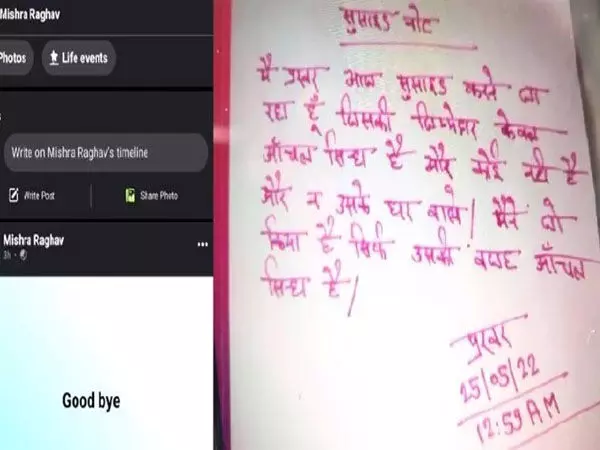 Mishra Raghav
Photos
Life events
Write on Mishra Raghav's timeline
Write Post Share Photo
Mishra Raghav
3h
Good bye
सुसाइड नोट
मै प्रखर आज सुसाइड करने जा
रहा हूँ जिसकी जिम्मेदार केवल
आँचल है और कोई नही है
और न उसके घर वाले। मैने जो
किया है सिर्फ उसकी वजह आँचल
है।
प्रखर
25/05/22
12:59 AM